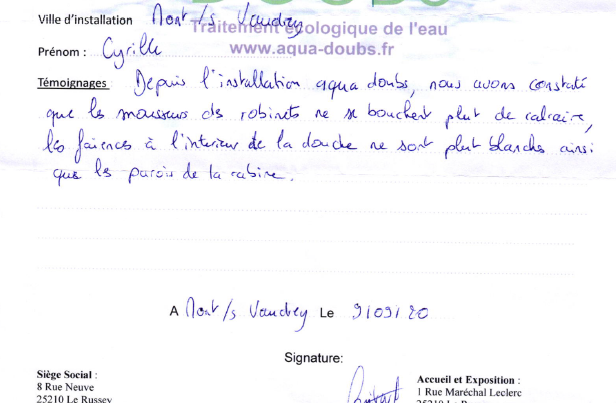 DOUBS
Ville d'installation Mont /s Vaudrey
Traitement écologique de l'eau
www.aqua-doubs.fr
Prénom : Cyrille
Témoignages Depuis l'installation aqua doubs, nous avons constaté
que les mousseurs des robinets ne se bouchent plut de calcaire,
les faiences à l'interieur de la douche ne sont plut blanches ainsi
que les parois de la cabine.
A Mont /s Vaudrey Le 9/09/20
Signature:
Siège Social :
8 Rue Neuve
25210 Le Russey
Accueil et Exposition :
1 Rue Maréchal Leclerc